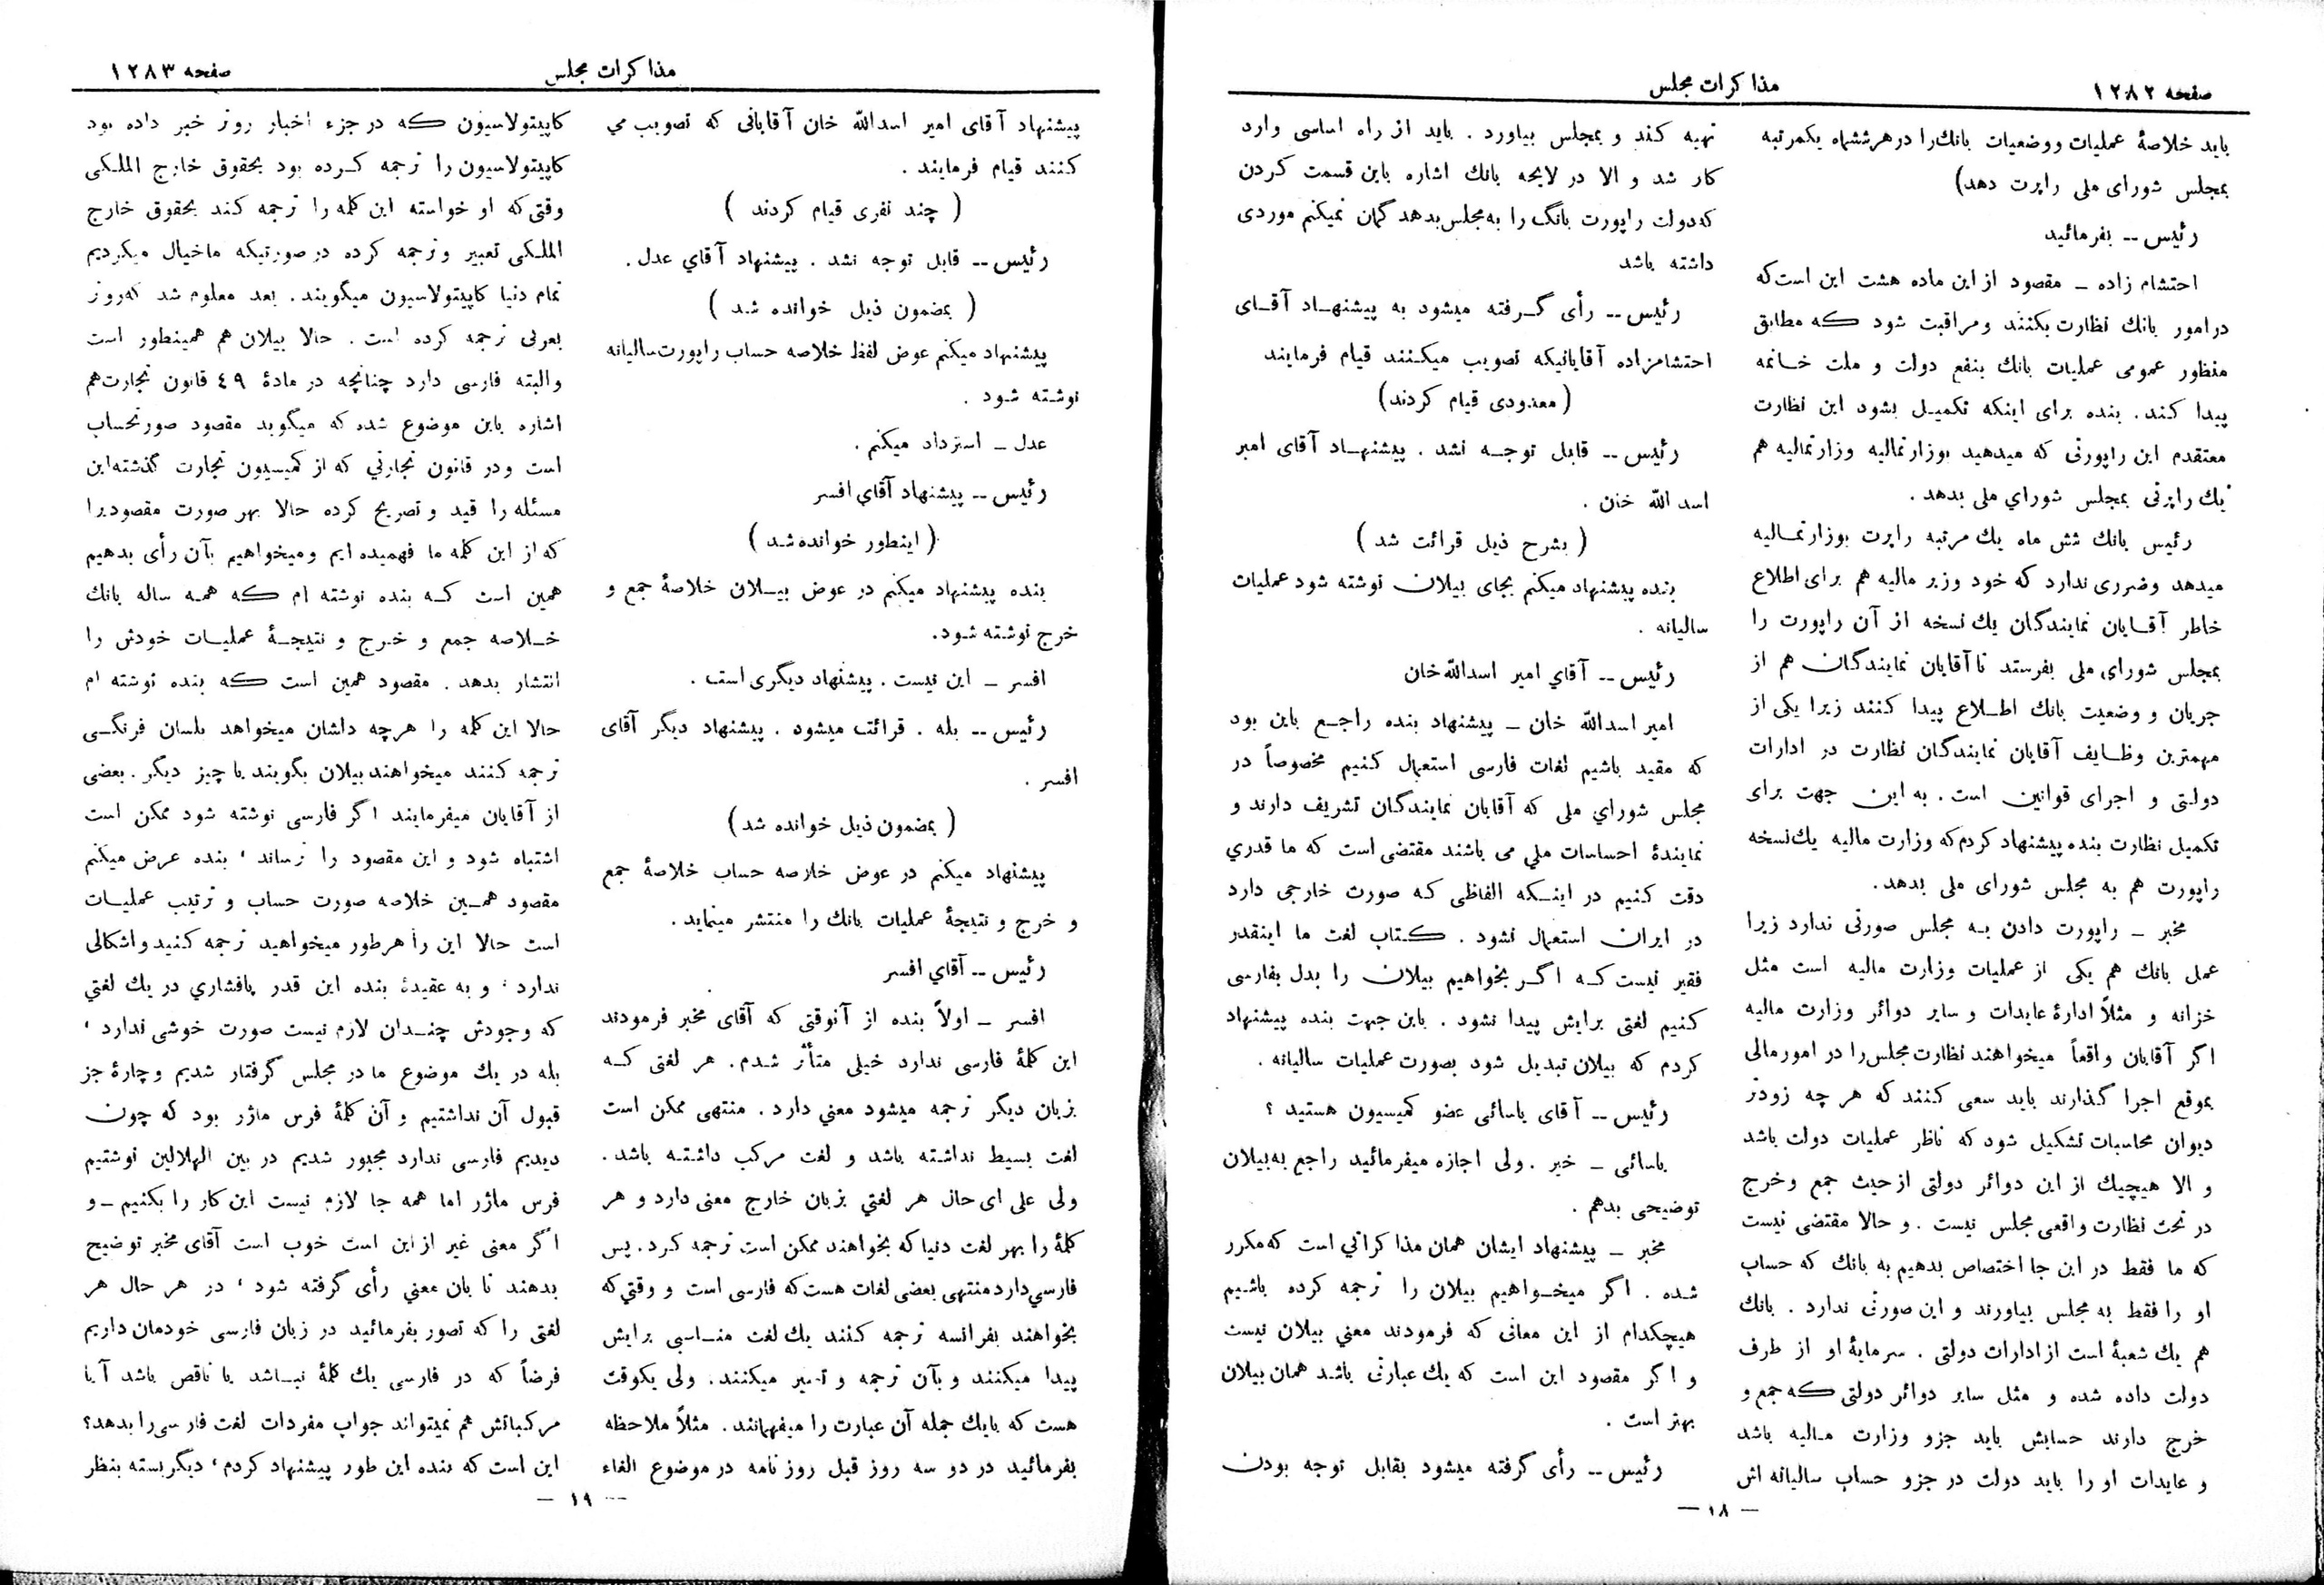 صفحه ۱۲۸۲
مذاکرات مجلس
باید خلاصهٔ عملیات و وضعیات بانك را در هر ششماه یکمرتبه
بمجلس شورای ملی راپرت دهد)
رئیس -- بفرمائید
احتشام زاده ـ مقصود از این ماده هشت این است که
در امور بانك نظارت بکنند و مراقبت شود که مطابق
منظور عمومی عملیات بانك بنفع دولت و ملت خاتمه
پیدا کند. بنده برای اینکه تکمیل بشود این نظارت
معتقدم این راپورتی که میدهید بوزارتمالیه وزارتمالیه هم
یك راپرتی بمجلس شورای ملی بدهد.
رئیس بانك شش ماه یك مرتبه راپرت بوزارتمالیه
میدهد وضرری ندارد که خود وزیر مالیه هم برای اطلاع
خاطر آقایان نمایندگان یك نسخه از آن راپورت را
بمجلس شورای ملی بفرستد تا آقایان نمایندگان هم از
جریان و وضعیت بانك اطلاع پیدا کنند زیرا یکی از
مهمترین وظایف آقایان نمایندگان نظارت در ادارات
دولتی و اجرای قوانین است. به این جهت برای
تکمیل نظارت بنده پیشنهاد کردم که وزارت مالیه یك نسخه
راپورت هم به مجلس شورای ملی بدهد.
مخبر ـ راپورت دادن به مجلس صورتی ندارد زیرا
عمل بانك هم یکی از عملیات وزارت مالیه است مثل
خزانه و مثلاً ادارهٔ عایدات و سایر دوائر وزارت مالیه
اگر آقایان واقعاً میخواهند نظارت مجلس را در امور مالی
بموقع اجرا گذارند باید سعی کنند که هر چه زودتر
دیوان محاسبات تشکیل شود که ناظر عملیات دولت باشد
و الا هیچیك از این دوائر دولتی از حیث جمع و خرج
در تحت نظارت واقعی مجلس نیست. و حالا مقتضی نیست
که ما فقط در این جا اختصاص بدهیم به بانك که حساب
او را فقط به مجلس بیاورند و این صورتی ندارد. بانك
هم یك شعبهٔ است از ادارات دولتی. سرمایهٔ او از طرف
دولت داده شده و مثل سایر دوائر دولتی که جمع و
خرج دارند حسابش باید جزو وزارت مالیه باشد
و عایدات او را باید دولت در جزو حساب سالیانه اش
تهیه کند و بمجلس بیاورد. باید از راه اساسی وارد
کار شد و الا در لایحه بانك اشاره باین قسمت کردن
که دولت راپورت بانگ را به مجلس بدهد گمان نمیکنم موردی
داشته باشد
رئیس -- رأی گرفته میشود به پیشنهاد آقای
احتشامزاده آقایانیکه تصویب میکنند قیام فرمایند
(معدودی قیام کردند)
رئیس -- قابل توجه نشد. پیشنهاد آقای امیر
اسد الله خان.
(بشرح ذیل قرائت شد)
بنده پیشنهاد میکنم بجای بیلان نوشته شود عملیات
سالیانه.
رئیس -- آقای امیر اسدالله خان
امیر اسدالله خان ـ پیشنهاد بنده راجع باین بود
که مقید باشیم لغات فارسی استعمال کنیم مخصوصاً در
مجلس شورای ملی که آقایان نمایندگان تشریف دارند و
نمایندهٔ احساسات ملی می باشند مقتضی است که ما قدری
دقت کنیم در اینکه الفاظی که صورت خارجی دارد
در ایران استعمال نشود. کتاب لغت ما اینقدر
فقیر نیست که اگر بخواهیم بیلان را بدل بفارسی
کنیم لغتی برایش پیدا نشود. باین جهت بنده پیشنهاد
کردم که بیلان تبدیل شود بصورت عملیات سالیانه.
رئیس -- آقای یاسائی عضو کمیسیون هستید؟
یاسائی ـ خیر. ولی اجازه میفرمائید راجع به بیلان
توضیحی بدهم.
مخبر ـ پیشنهاد ایشان همان مذاکراتی است که مکرر
شده. اگر میخواهیم بیلان را ترجمه کرده باشیم
هیچکدام از این معانی که فرمودند معنی بیلان نیست
و اگر مقصود این است که یك عبارتی باشد همان بیلان
بهتر است.
رئیس -- رأی گرفته میشود بقابل توجه بودن
— ۱۸ —
مذاکرات مجلس
صفحه ۱۲۸۳
پیشنهاد آقای امیر اسدالله خان آقایانی که تصویب می
کنند قیام فرمایند.
(چند نفری قیام کردند)
رئیس -- قابل توجه نشد. پیشنهاد آقای عدل.
(بمضمون ذیل خوانده شد)
پیشنهاد میکنم عوض لفظ خلاصه حساب راپورت سالیانه
نوشته شود.
عدل ـ استرداد میکنم.
رئیس -- پیشنهاد آقای افسر
(اینطور خوانده شد)
بنده پیشنهاد میکنم در عوض بیلان خلاصهٔ جمع و
خرج نوشته شود.
افسر ـ این نیست. پیشنهاد دیگری است.
رئیس -- بله. قرائت میشود. پیشنهاد دیگر آقای
افسر.
(بمضمون ذیل خوانده شد)
پیشنهاد میکنم در عوض خلاصه حساب خلاصهٔ جمع
و خرج و نتیجهٔ عملیات بانك را منتشر مینماید.
رئیس -- آقای افسر
افسر ـ اولاً بنده از آنوقتی که آقای مخبر فرمودند
این کلمهٔ فارسی ندارد خیلی متأثر شدم. هر لغتی که
بزبان دیگر ترجمه میشود معنی دارد. منتهی ممکن است
لغت بسیط نداشته باشد و لغت مرکب داشته باشد.
ولی علی ای حال هر لغتی بزبان خارج معنی دارد و هر
کلمهٔ را بهر لغت دنیا که بخواهند ممکن است ترجمه کرد. پس
فارسی دارد منتهی بعضی لغات هست که فارسی است و وقتی که
بخواهند بفرانسه ترجمه کنند یك لغت مناسبی برایش
پیدا میکنند و بآن ترجمه و تعبیر میکنند. ولی یکوقت
هست که بایك جمله آن عبارت را میفهمانند. مثلاً ملاحظه
بفرمائید در دو سه روز قبل روزنامه در موضوع الغاء
کاپیتولاسیون که در جزء اخبار روتر خبر داده بود
کاپیتولاسیون را ترجمه کرده بود بحقوق خارج الملکی
وقتی که او خواسته این کلمه را ترجمه کند بحقوق خارج
الملکی تعبیر و ترجمه کرده در صورتیکه ما خیال میکردیم
تمام دنیا کاپیتولاسیون میگویند. بعد معلوم شد که روتر
بعربی ترجمه کرده است. حالا بیلان هم همینطور است
والبته فارسی دارد چنانچه در مادهٔ ٤٩ قانون تجارت هم
اشاره باین موضوع شده که میگوید مقصود صورتحساب
است و در قانون تجارتی که از کمیسیون تجارت گذشته این
مسئله را قید و تصریح کرده حالا بهر صورت مقصودیرا
که از این کلمه ما فهمیده ایم و میخواهیم بآن رأی بدهیم
همین است که بنده نوشته ام که همه ساله بانك
خلاصه جمع و خرج و نتیجهٔ عملیات خودش را
انتشار بدهد. مقصود همین است که بنده نوشته ام
حالا این کلمه را هرچه دلشان میخواهد بلسان فرنگی
ترجمه کنند میخواهند بیلان بگویند یا چیز دیگر. بعضی
از آقایان میفرمایند اگر فارسی نوشته شود ممکن است
اشتباه شود و این مقصود را نرساند، بنده عرض میکنم
مقصود همین خلاصه صورت حساب و ترتیب عملیات
است حالا این را هرطور میخواهید ترجمه کنید و اشکالی
ندارد، و به عقیدهٔ بنده این قدر پافشاری در یك لغتی
که وجودش چندان لازم نیست صورت خوشی ندارد،
بله در یك موضوع ما در مجلس گرفتار شدیم و چارهٔ جز
قبول آن نداشتیم و آن کلمهٔ فرس ماژر بود که چون
دیدیم فارسی ندارد مجبور شدیم در بین الهلالین نوشتیم
فرس ماژر اما همه جا لازم نیست این کار را بکنیم ـ و
اگر معنی غیر از این است خوب است آقای مخبر توضیح
بدهند تا بان معنی رأی گرفته شود، در هر حال هر
لغتی را که تصور بفرمائید در زبان فارسی خودمان داریم
فرضاً که در فارسی یك کلمهٔ نباشد یا ناقص باشد آیا
مرکباتش هم نمیتواند جواب مفردات لغت فارسی را بدهد؟
این است که بنده این طور پیشنهاد کردم، دیگر بسته بنظر
— ۱۹ —